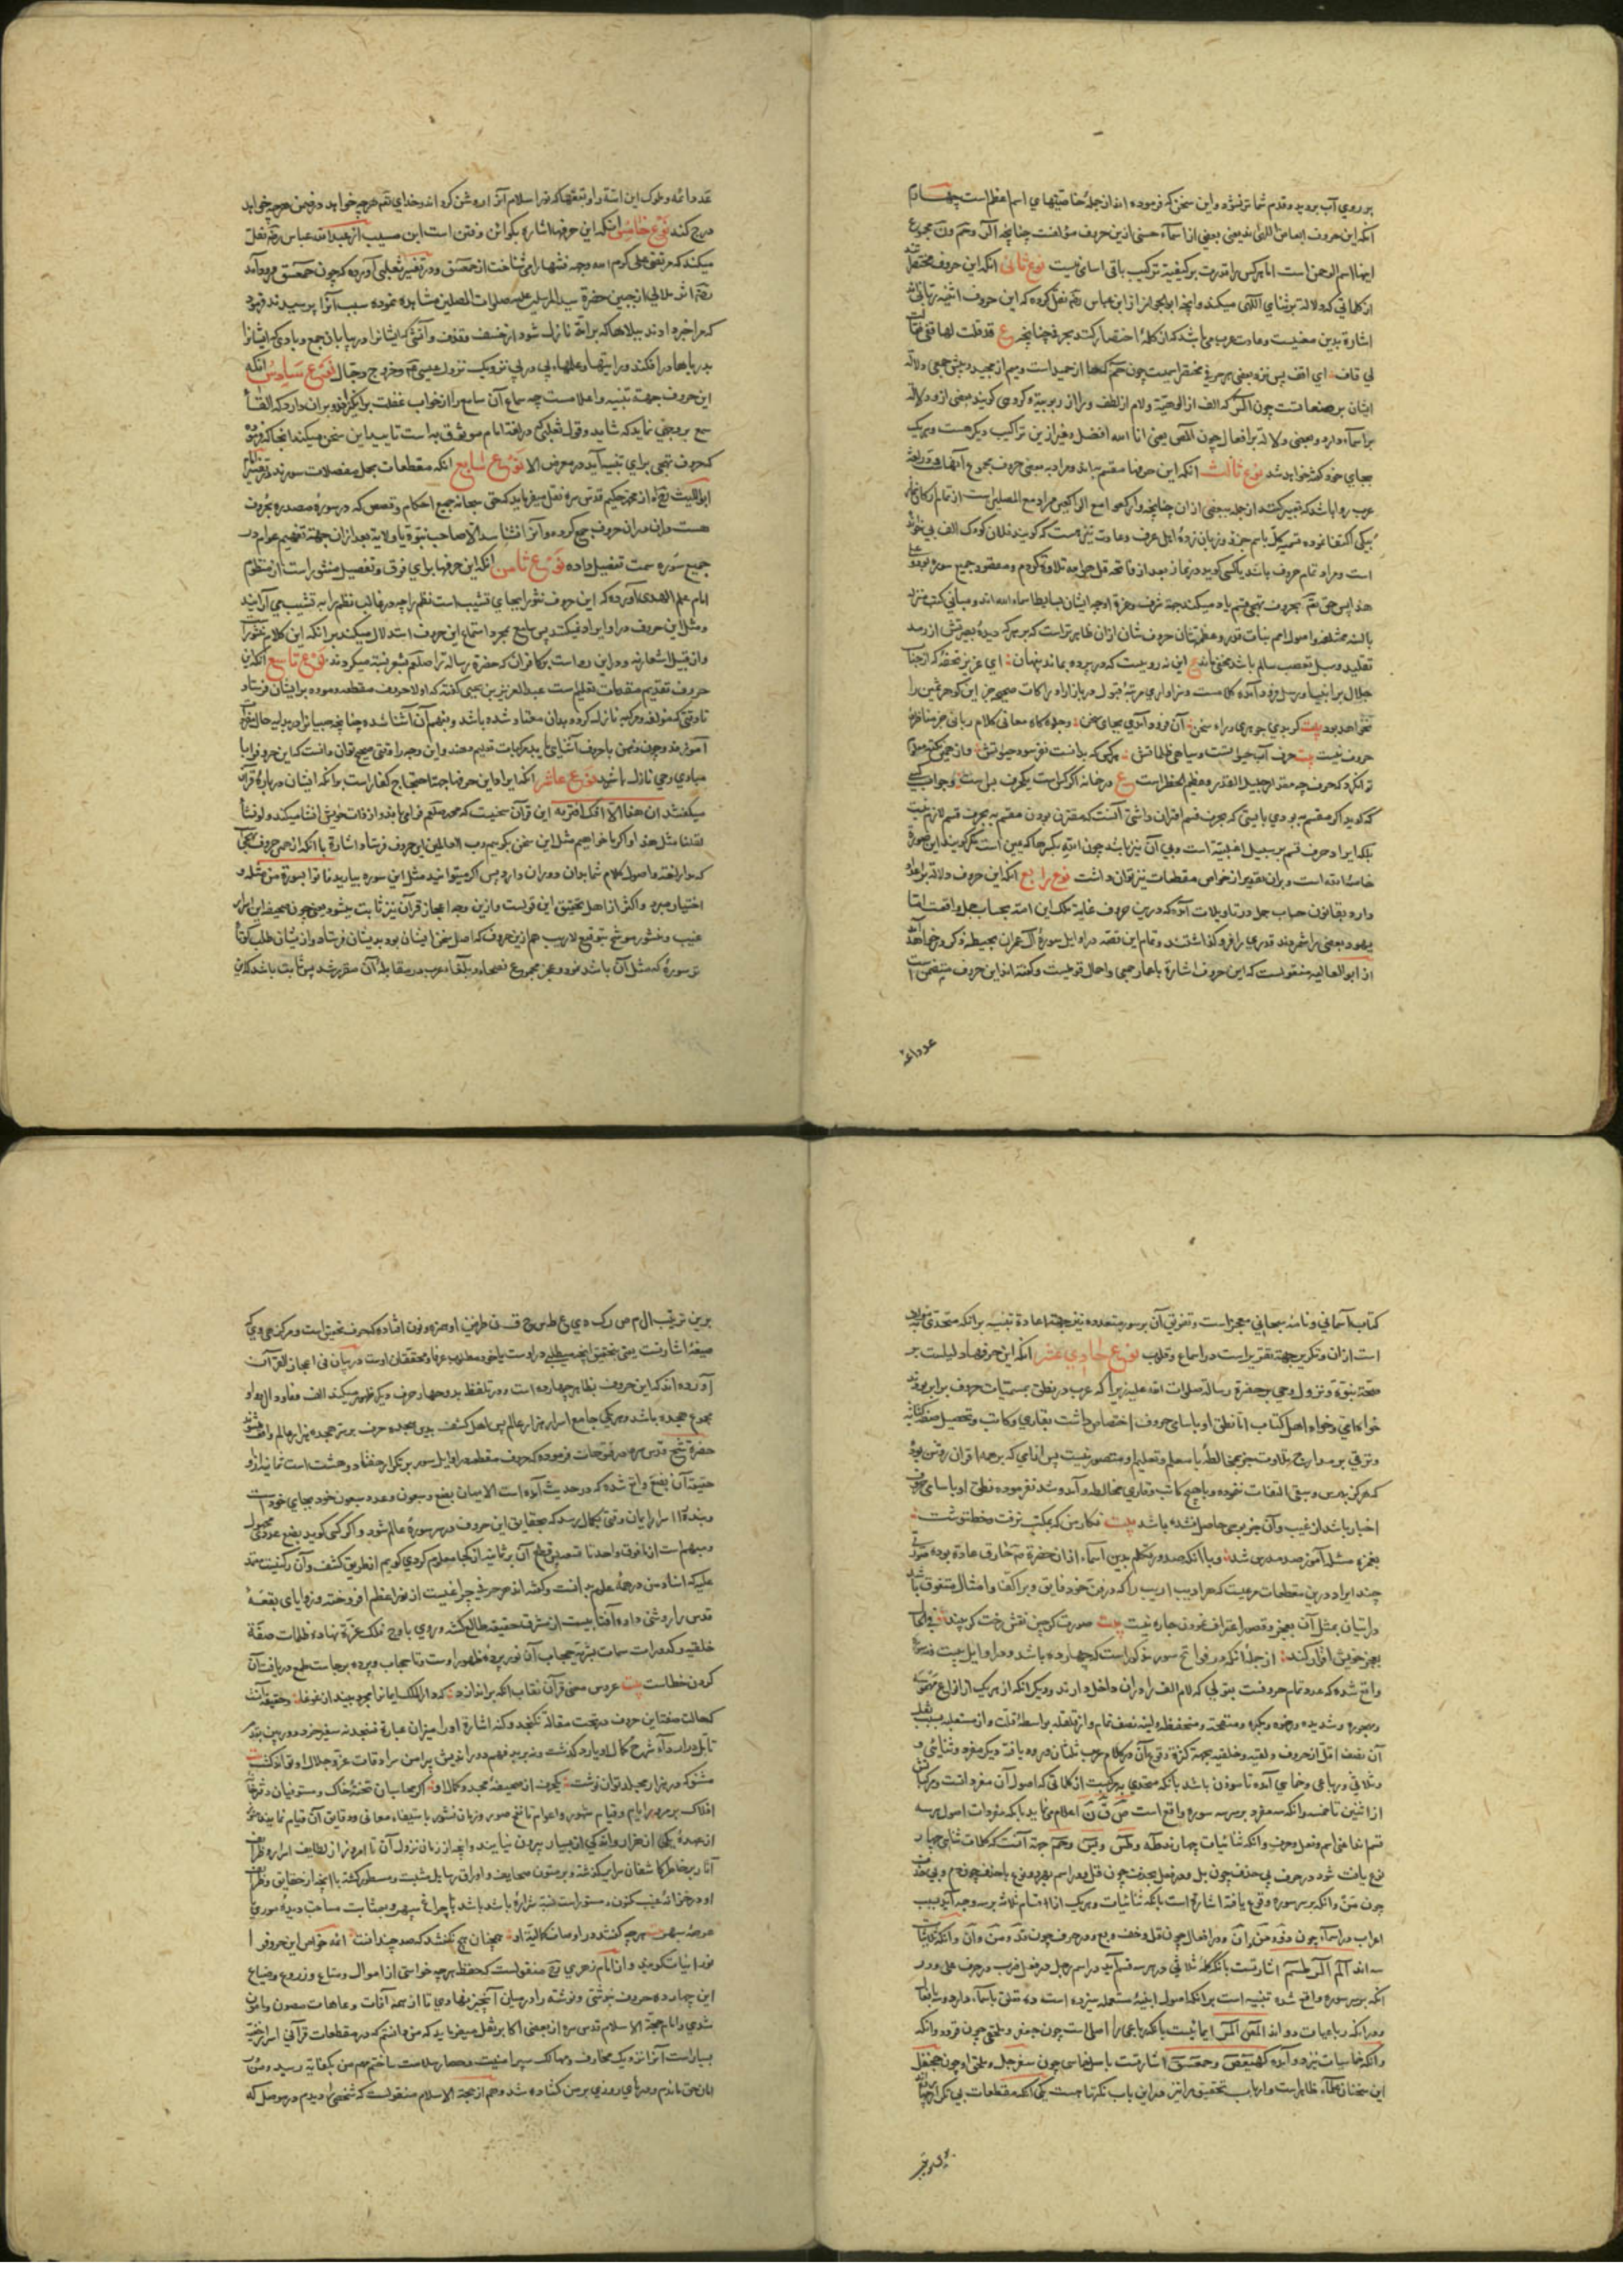 بر روی آب بروید و قدم شما تر نشود و این سخن که فرموده اند از جمله خاصیتهای اسم اعظم است چهارم
آنکه این حروف ابعاض اند یعنی بعضی از اسماء حسنی ازین حروف مؤلفست چنانچه الر و حم و ن مجموع
اینها اسم الرحمن است اما هر کس را قدرت بر کیفیة ترکیب باقی اسامی نیست نوع ثانی آنکه این حروف مختصر
از کلماتی که دلالة بر ثنای الهی میکند و آنچه ابو الجوزا از ابن عباس رضه نقل کرده که این حروف اثنیه ربانی
اشارة بدین معنیست و عادت عرب می باشد که از کلمه اختصار کنند بحرفی چنانچه ع قد قلت لها قفی فقالت
لی قاف ای اقف پس نزد بعضی هر حرفی مختصر اسمیست چون حم که حا از حمید است و میم از مجید و پیش جمعی دلالة
ایشان بر صفاتست چون الر که الف از الوهیة و لام از لطف و را از ربوبیة و گروهی گویند بعضی ازو دلالة
بر اسماء دارد و بعضی دلالة بر افعال چون المص یعنی انا الله افضل و غیر ازین تراکیب دیگر هست و هر یک
بجای خود گفته خواهد شد نوع ثالث آنکه این حرفها مقسم به اند و مراد به بعضی حروف مجموع آنهاست و در لغة
عرب روا باشد که تعبیر کنند از جمله ببعضی از آن چنانچه و ارکعوا مع الراکعین مراد مع المصلین است از تمام ارکان نماز
بیکی اکتفا نموده تسمیه کل باسم جزء و زبان زده اهل عرف و عادت نیز هست که گویند فلان کودک الف بی خوانده
است و مراد تمام حروف باشد یا کسی گوید در نماز بعد از فاتحه قل هو الله تلاوة کردم و مقصود جمیع سوره بود و علی
هذا پس حق تعم بحروف تهجی قسم یاد میکند جهة شرف و عزة او چه ایشان بسایط اسماء الله اند و مبانی کتب منزله
بالسنه مختلفه و اصول امم بنات قدر و عظم شان حروف شان از آن ظاهرتر است که بر هر که دیده بصیرتش از رمد
تقلید و سبل تعصب سالم باشد مخفی ماند ع این نه روییست که در پرده بماند پنهان ای عزیز تحفه که از جناب
جلال بر انبیا و رسل فرود آمده کلامست و سزاواری مرتبه قبول در بازار ادراکات صحیحه جز این گوهر ثمین را
نخواهد بود بیت گر بدی جوهری ورای سخن آن فرود آمدی بجای سخن و جلوه گاه معانی کلام ربانی جز مناظر
حروف نیست بیت حرف آب حیواتست و سیاهی ظلماتش هر کس که بدانست نفرسود حیواتش و از حمی نکته معلوم
توان کرد که حروف چه مقدار جلیل القدر و عظیم الخطر است ع در خانه اگر کس است یک حرف بس است و جواب کسی
که گوید اگر مقسم به بودی بایستی که بحرف قسم اقتران داشتی آنست که مقترن بودن مقسم به بحرف قسم لازم نیست
بلکه ایراد حرف قسم بر سبیل اغلبیة است و بی آن نیز باشد چون الله
خاصه الله است و بر آن تقدیر از خواص مقطعات نیز توان داشت نوع رابع آنکه این حروف دلالة بر اعداد
دارد بقانون حساب جمل و در تاویلات آمده که درین حروف غایة ملک این امة بحساب جمل واقعست اما
یهود بعضی را شمردند و قدری را فرو گذاشتند و تمام این قصه در اوایل سوره آل عمران بمحیط ذکر و خواهد آمد
از ابو العالیه منقولست که این حروف اشارة باعمار جمعی و آجال قومیست و گفته اند این حروف متضمن است
عدد ائمه
عدد ائمه و ملوک این امة را و بقعها که نور اسلام آنرا روشن کرد اند و خدای تعم هر چه خواهد در ضمن هر چه خواهد
درج کند نوع خامس آنکه این حرفها اشاره بکوائن و فتن است ابن مسیب از عبد الله عباس رضه نقل
میکند که مرتضی علی کرم الله وجهه فتنها را می شناخت از حمعسق و در تفسیر ثعلبی آورده که چون حمعسق فرود آمد
که مرا خبر دادند ببلاها که بر امة نازل شود از خسف و قذف و آتشی که ایشانرا در بیابان جمع و بادی که ایشانرا
بدریاها در افکند و رایتها و علمهاء پی در پی نزدیک نزول عیسی عم و خروج دجال نوع سادس آنکه
این حروف جهة تنبیه و اعلامست چه سماع آن سامع را از خواب غفلت بر انگیزد و بران دارد که القاء
سمع بر وجهی نماید که شاید و قول ثعلبی که در لغة امام موثوق به است تایید این سخن میکند آنجا که فرمود
که حروف تهجی برای تنبیه آید در معرض الا نوع السابع آنکه مقطعات مجمل مفصلات سورند در تفسیر امام
ابو اللیث رحمه الله از محمد حکیم قدس سره نقل میفرماید که حق سبحانه جمیع احکام و قصص که در سوره مصدره بحروف
هست در آن حروف جمع کرده و آنرا نشناسد الا صاحب نبوة یا ولایة بعد از آن جهة تفهیم عوام در
جمیع سوره سمت تفصیل داده نوع ثامن آنکه این حرفها برای فرق و تفصیل منثور است از منظوم
امام علم الهدی آورده که این حروف نثر را بجای تشبیب است نظم را چه در غالب نظم را به تشبیب می آرایند
و مثل این حروف در او ایراد نمیکنند پس سامع بمجرد استماع این حروف استدلال میکند بر آنکه این کلام منثور است
و از قبیل اشعار نیه و در این رد است بر کافران که حضرة رسالة را صلعم بشعر نسبة میکردند نوع تاسع آنکه این
حروف تقدیم مقدمات تعلیم است عبد العزیز بن یحیی گفته که اولا حروف مقطعه و موده بر ایشان فرستاد
تا وقتی که مؤلف و مرکبه نازل کردد بدان معتاد شده باشد و بفهم آن آشنا شده چنانچه صبیانرا در بدایة حال
مبادی وحی نازل باشد نوع عاشر آنکه ایراد این حرفها جهة احتجاج کفار است بر آنکه ایشان درباره قرآن
میکفتند ان هذا الا افک افتریه این قرآن سخنیست که محمد صلعم فرا می بافد و از ذات خویش انشا میکند و لو نشاء
لقلنا مثل هذا و اگر ما خواهیم مثل این سخن بگوییم رب العالمین این حروف فرستاد اشارة با آنکه از همین حروف تهجی
که مدار لغة و اصول کلام شما بدان دوران دارد پس اگر میتوانید مثل این سوره بیارید فاتوا بسورة من مثله و
اختیار مبرد و اکثر از اهل تحقیق این قولست و ازین وجه اعجاز قرآن نیز ثابت میشود یعنی چون صحیفه این اسرار
غیب و منشور موشح بتوقیع لاریب هم ازین حروف که اصل سخن ایشان بود بدیشان فرستاد و از ایشان طلب کرد فا
تو سورة که مثل آن باشد نبود و عجز مجموع فصحاء و بلغاء عرب در مقابله آن مقرر شد پس ثابت باشد که این
کتاب آسمانی و نامه سبحانی معجز است و تفریق آن بر سور متعدده نیز جهة اعادة تنبیه بر آنکه متحدی به مراد
است از آن و تکریر جهة تقریر است در اسماع و قلوب نوع حادی عشر آنکه این حرفها دلیلست بر
صحة نبوة و نزول وحی بر حضرة رسالة صلوات الله علیه زیرا که عرب در نطق بمسمیات حروف برابر بودند
خواه امی و خواه اهل کتاب اما نطق او باسامی حروف اختصاص داشت بقاری و کاتب و تحصیل صنعة کتابة
و ترقی بر مدارج تلاوت جز بمخالطة با معلم و تعلیم او متصور نیست پس از امی که بر همه اقران روشن بود
که هرگز بدرس و سبق التفات ننموده و با هیچ کاتب و قاری مخالطه و آمد و شد نفرموده نطق او باسامی حروف
اخبار باشد از غیب و آن جز بوحی حاصل نشده باشد بیت نگار من که بمکتب نرفت و خط ننوشت
بغمزه مسئله آموز صد مدرس شد و با آنکه صدور تکلم بدین اسماء از آن حضرة صم خارق عادة بوده
چند ایراد درین مقطعات مرعیست که هر ادیب اریب را که در فن خود فایق و بر اکفا و امثال متفوق باشد
در اتیان بمثل آن بعجز و قصور اعتراف نمودن چاره نیست بیت صورتگر چین نقش رخت گر بیند
بعجز خویش اقرار کند از جمله آنکه در فواتح سور مذکور است که چهارده باشد و در اوایل بیست و نه سوره
واقع شده که عدد تمام حروفست بقولی که لام الف را در آن داخل دارند و دیگر آنکه از هر یک از انواع مهموسه
و مجهوره و شدیده و رخوه و مطبقه و منفتحه و منخفضه و لینه نصف تمام و از قلقله بواسطه قلت و از مستعلیه بسبب ثقل
آن نصف اقل از حروف ذلقیه و حلقیه بجهة کثرة وقوع آن در کلام عرب ثلثان ورود یافته دیگر مفرد و ثنائی و
و ثلاثی و رباعی و خماسی آمده تا موذن باشد بآنکه متحدی به مرکبیست از کلماتی که اصول آن مفرد است و مرکبات
از اثنین تا خمسه و آنکه سه مفرد بر سر سه سوره واقع است ص ق ن اعلام می نماید بآنکه مفردات اصول بر سه
قسم اند اعنی اسم و فعل و حرف و آنکه ثنائیات چهارند طه و طس و یس و حم جهة آنست که کلمات ثنائی چهار
نوع یافت شود در حرف بی حذف چون بل و در فعل بحذف چون قل و در اسم بهر دو نوع با حذف چون دم و بی حذف
چون من و آنکه بر سر سوره وقوع یافته اشارة است بآنکه ثنائیات و هر یک از اقسام ثلاث بر سه وجه آید بسبب
اعراب در اسماء چون ذو و من و ان و در افعال چون قل و خف و بع و در حروف چون قد و من و ان و آنکه ثلاثیات
سه اند الم الر طسم اشارتست بآنکه کلمه ثلاثی در هر سه قسم آید در اسم رجل و در فعل ضرب و در حرف علی و در
آنکه بر سیزده سوره واقع شده تنبیه است بر آنکه اصول ابنیه مستعمله سیزده است ده تعلق باسماء دارد و سه بافعال
و در آنکه رباعیات دو اند المص المر ایمائیست بآنکه رباعی را اصلی است چون جعفر و ملحقی چون قردد و آنکه
و آنکه خماسیات نیز دو آمده کهیعص و حمعسق اشارتست باسم خماسی چون سفرجل و ملحق او چون جحنفل
این سخنان علماء ظاهر است و ارباب تحقیق را نیز درین باب نکتهاست یکی آنکه مقطعات بی تکرار چهارده
برین ترتیب ال م ص ر ک ه ی ع ط س ح ق ن طرفین او همزه و نون افتاده که حرف تحقیق است و مرکز هی وی
صیغه اشارتست یعنی بتحقیق آنچه میطلبی در اوست یا خود مطلوب عرفا و محققان اوست در بیان فی اعجاز القرآن
آورده اند که این حروف بظاهر چهارده است و در تلفظ بدو چهار حرف دیگر ظهور میکند الف فا و دال و واو
مجموع هجده باشد و هر یکی جامع اسرار هزار عالم پس اهل کشف بدین هجده حرف بر سر هجده هزار عالم واقف شوند
حضرة شیخ قدس سره در فتوحات فرموده که حروف مقطعه در اوایل سور بر تکرار هفتاد و هشت است ثمانیه از و
حقیقة آن بضع واقع شده که در حدیث آمده است الایمان بضع و سبعون و عدد سبعون خود بجای خود است
و بنده را اسرار ایمان وقتی بکمال رسد که بحقایق این حروف در هر سوره عالم شود و اگر کسی گوید بضع عددی مجهول
و مبهم است از ما فوق واحد تا تسعه پس قطع آن بر ثمانیه از کجا معلوم کردی گوییم از طریق کشف و آن رکنیست معتمد
علیه که استاد من در همه علوم اوست و گفته اند هر حرفی چراغیست از نور اعظم افروخته و زوایای بقعه
قدس را روشنی داده آفتابیست از مشرق حقیقة طالع گشته و روی باوج فلک عزة نهاده ظلمات صفة
خلقیه و کدورات سمات بشریة حجاب آن نور و پرده ظهور اوست و تا حجاب و پرده برجاست طمع دریافت آن
کردن خطاست بیت عروس معنی قرآن نقاب آنکه بر اندازد که دار الملک ایمانرا مجرد بیند از غوغا
که حالت صفت این حروف در تحت مقالة نگنجد و کنه اشارة او را میزان عبارة نسنجد نه سفیر خرد دوربین
تأمل در ادراک شرح کمال او یارد گذشت و نه برید فهم دور اندیش پیرامن سرادقات عزة جلال او تواند گشت
مثنوی در هزار مجلد توان نوشت یک حرف از صحیفه مجد و کمال او اگر محاسبان تخته خاک و مستوفیان دفتر
افلاک بر مر ایام و قیام شهور و اعوام تا نفخ صور و زمان نشور باستیفاء معانی و دقایق آن قیام نمایند هنوز
از عهده یکی از هزار و اندکی از بسیار بیرون نیایند و آنچه از زمان نزول آن تا امروز از لطایف اسرار و
آثار بر خاطر کاشفان سرایر گذشته و بر متون صحایف و اوراق رسایل مثبت و مسطور گشته با آنچه از حقایق و
او در خزانه غیب مکنون و مستور است نسبة شراره باشد با چراغ سپهر و بمثابت مساحت دیده موری با
عرصه سپهر بیت هر چه گفتند در اوصاف کمالیة او همچنان هیچ نگفتند که صد چندانست ائمه خواص این حروف را
نورانیات گویند و از امام زهری رح منقولست که حفظ هر چه خواستی از اموال و متاع و زروع و ضیاع
این چهارده حروف بنوشتی و نوشته را در میان آنچیز نهادی تا از همه آفات و عاهات مصون و مامون
شدی و امام حجة الاسلام قدس سره از بعضی اکابر نقل میفرماید که من دانستم که در مقطعات قرآنی اسرار خفیه
بسیار است آنرا نزدیک مخاوف و مهالک سپر امنیت و حصار سلامت ساختم مهم من بکفایة رسید و من
امان حق ماندم و درهای روزی بر من گشاده شد و هم از حجة الاسلام منقولست که شخصی را دیدم در موصل که